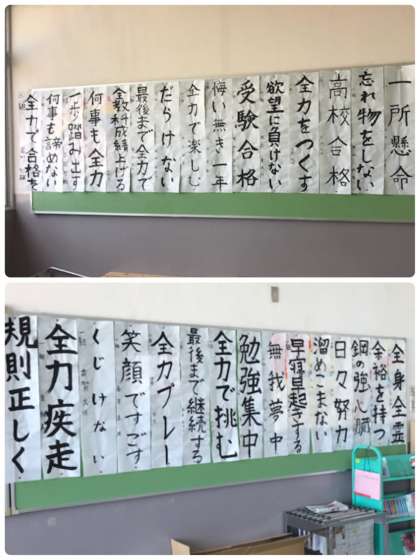 一所懸命
忘れ物をしない
高校合格
全力をつくす
欲望に負けない
受験合格
悔い無き一年
全力で楽しむ
だらけない
最後まで全力で
全教科成績上げる
何事も全力
一歩踏み出す
何事も諦めない
全力で合格を
全身全霊
余裕を持つ
鋼の強心臓
日々努力
溜めこまない
早寝早起きする
無我夢中
勉強集中
全力で挑む
最後まで継続する
全力プレー
笑顔ですごす
くじけない
全力疾走
規則正しく